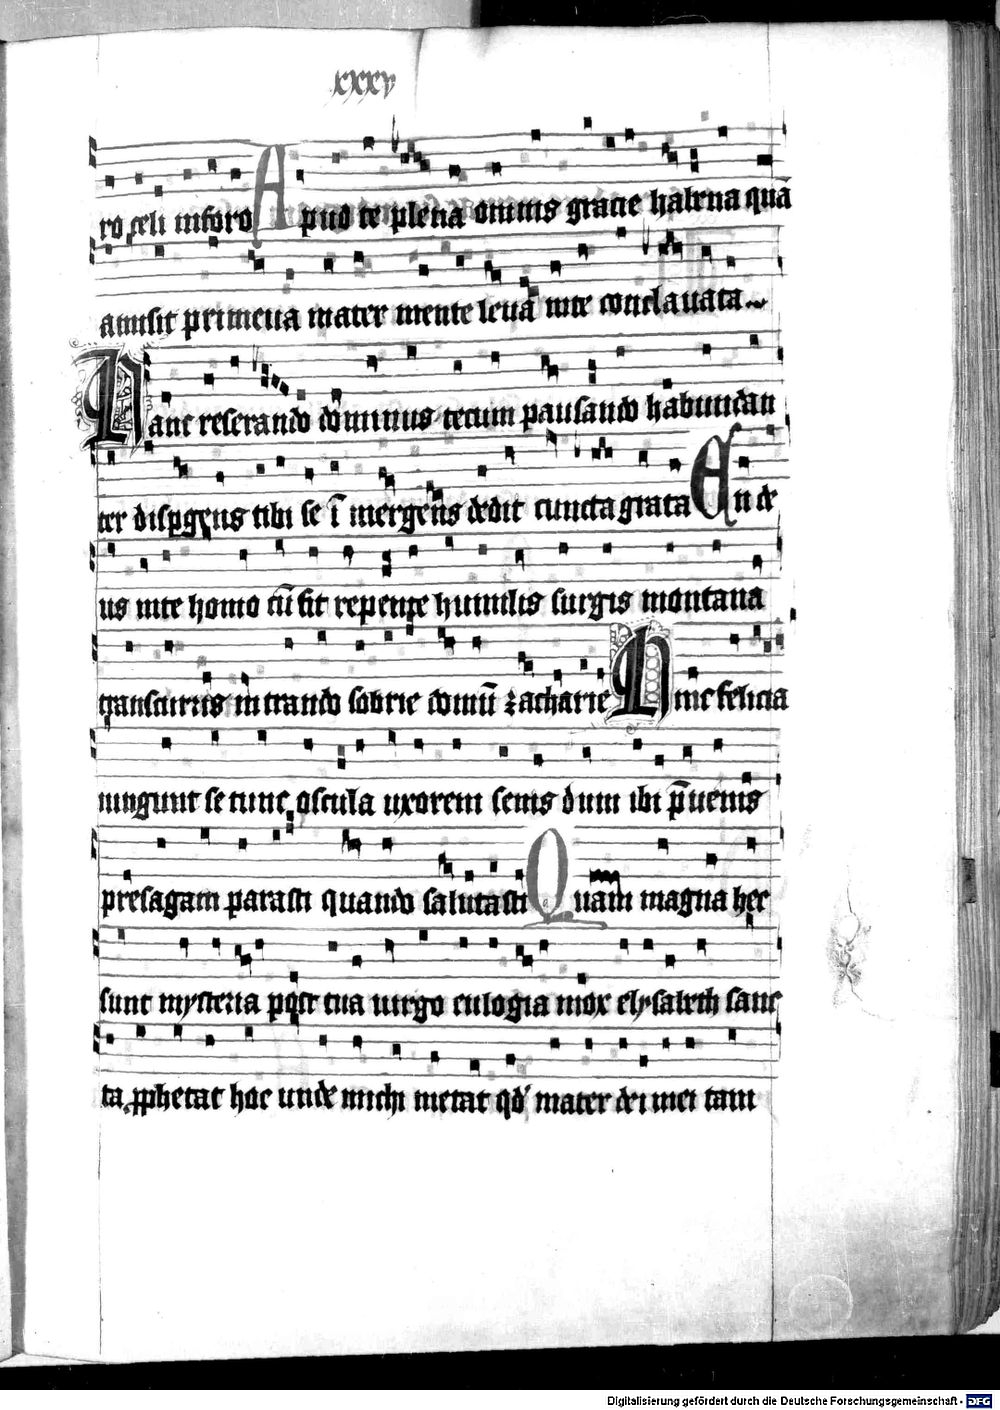 xxxv
ro celi in foro Apud te plena omnis gracie habena quā
amisit primeua mater mente leua in te conclauata
Hanc reserando dominus tecum pausando habundan
ter dispgens tibi se ī mergens dedit cuncta grata En de
us in te homo cū fit repente humilis surgis montana
transcurris intrando sobrie domū zacharie Hinc felicia
iungunt se tunc oscula uxorem senis dum ibi p̄uenis
presagam parasti quando salutasti Quam magna hec
sunt mysteria post tua uirgo eulogia mox elysabeth sanc
ta pphetat hoc unde michi metat qd mater dei mei tam
Digitalisierung gefördert durch die Deutsche Forschungsgemeinschaft - DFG